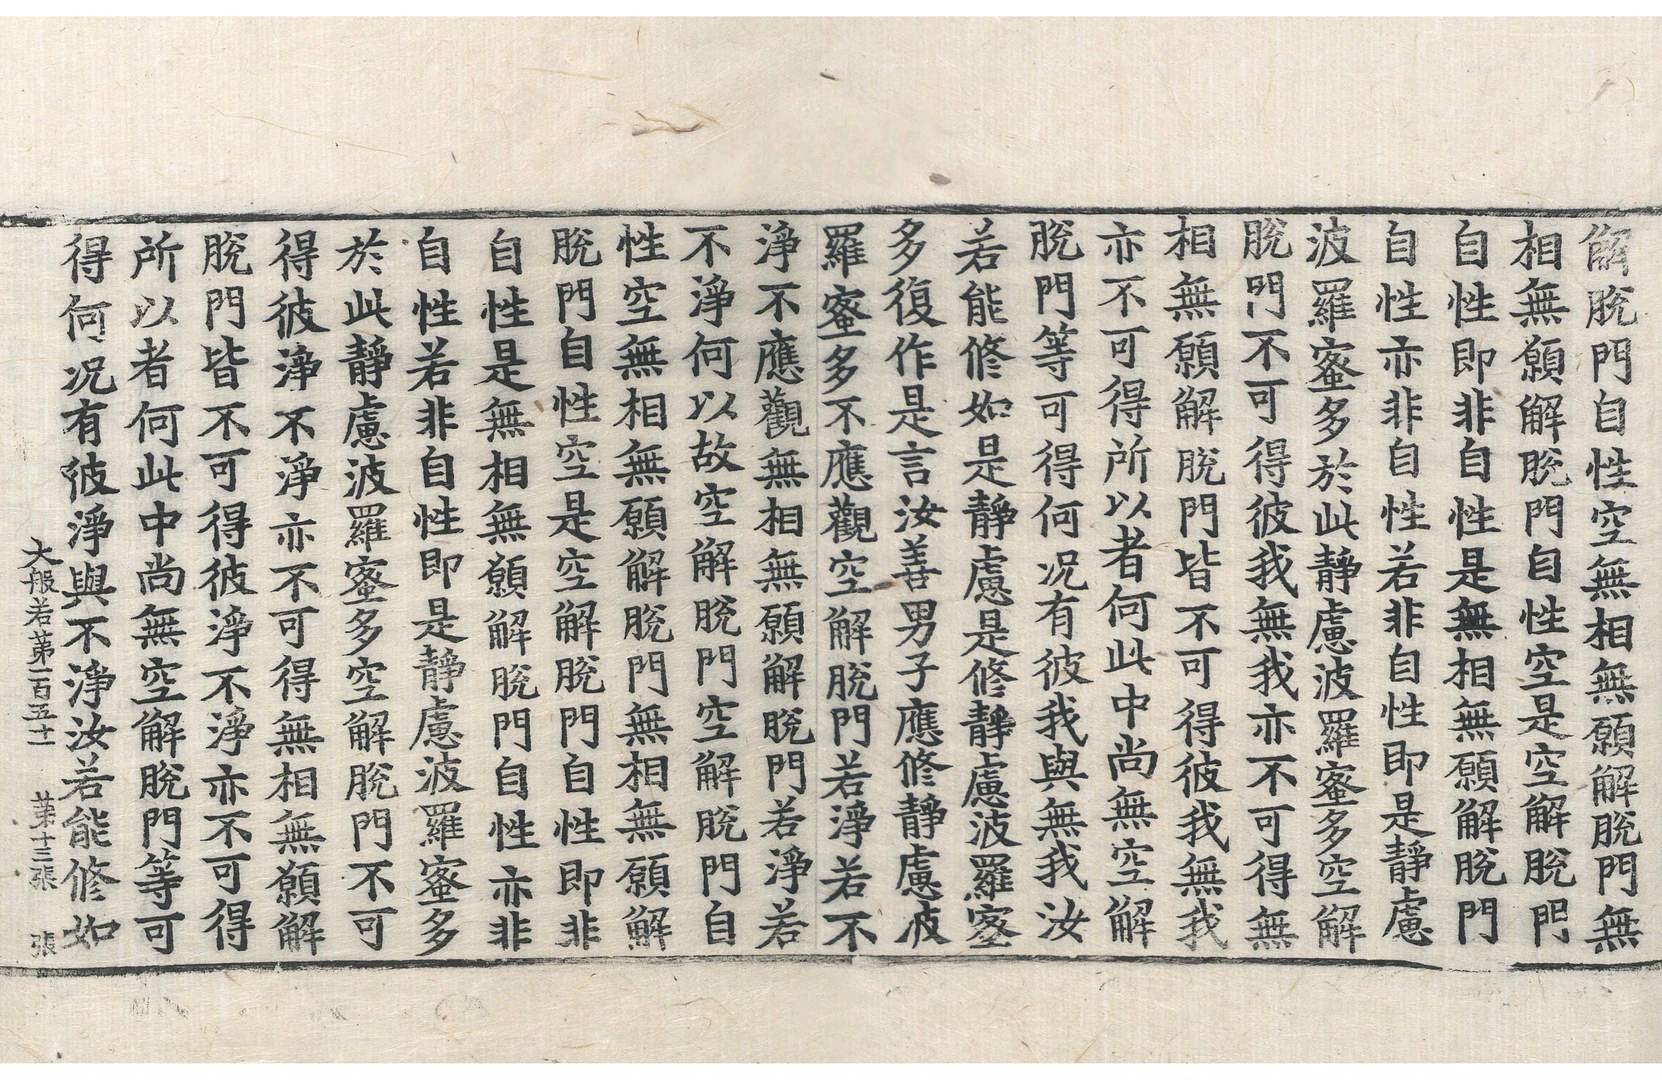 解脫門自性空無相無願解脫門無
相無願解脫門自性空是空解脫門
自性即非自性是無相無願解脫門
自性亦非自性若非自性即是靜慮
波羅蜜多於此靜慮波羅蜜多空解
脫門不可得彼我無我亦不可得無
相無願解脫門皆不可得彼我無我
亦不可得所以者何此中尚無空解
脫門等可得何況有彼我與無我汝
若能修如是靜慮是修靜慮波羅蜜
多復作是言汝善男子應修靜慮波
羅蜜多不應觀空解脫門若淨若不
淨不應觀無相無願解脫門若淨若
不淨何以故空解脫門空解脫門自
性空無相無願解脫門無相無願解
脫門自性空是空解脫門自性即非
自性是無相無願解脫門自性亦非
自性若非自性即是靜慮波羅蜜多
於此靜慮波羅蜜多空解脫門不可
得彼淨不淨亦不可得無相無願解
脫門皆不可得彼淨不淨亦不可得
所以者何此中尚無空解脫門等可
得何況有彼淨與不淨汝若能修如
大般若第一百五十一 第十三張 張